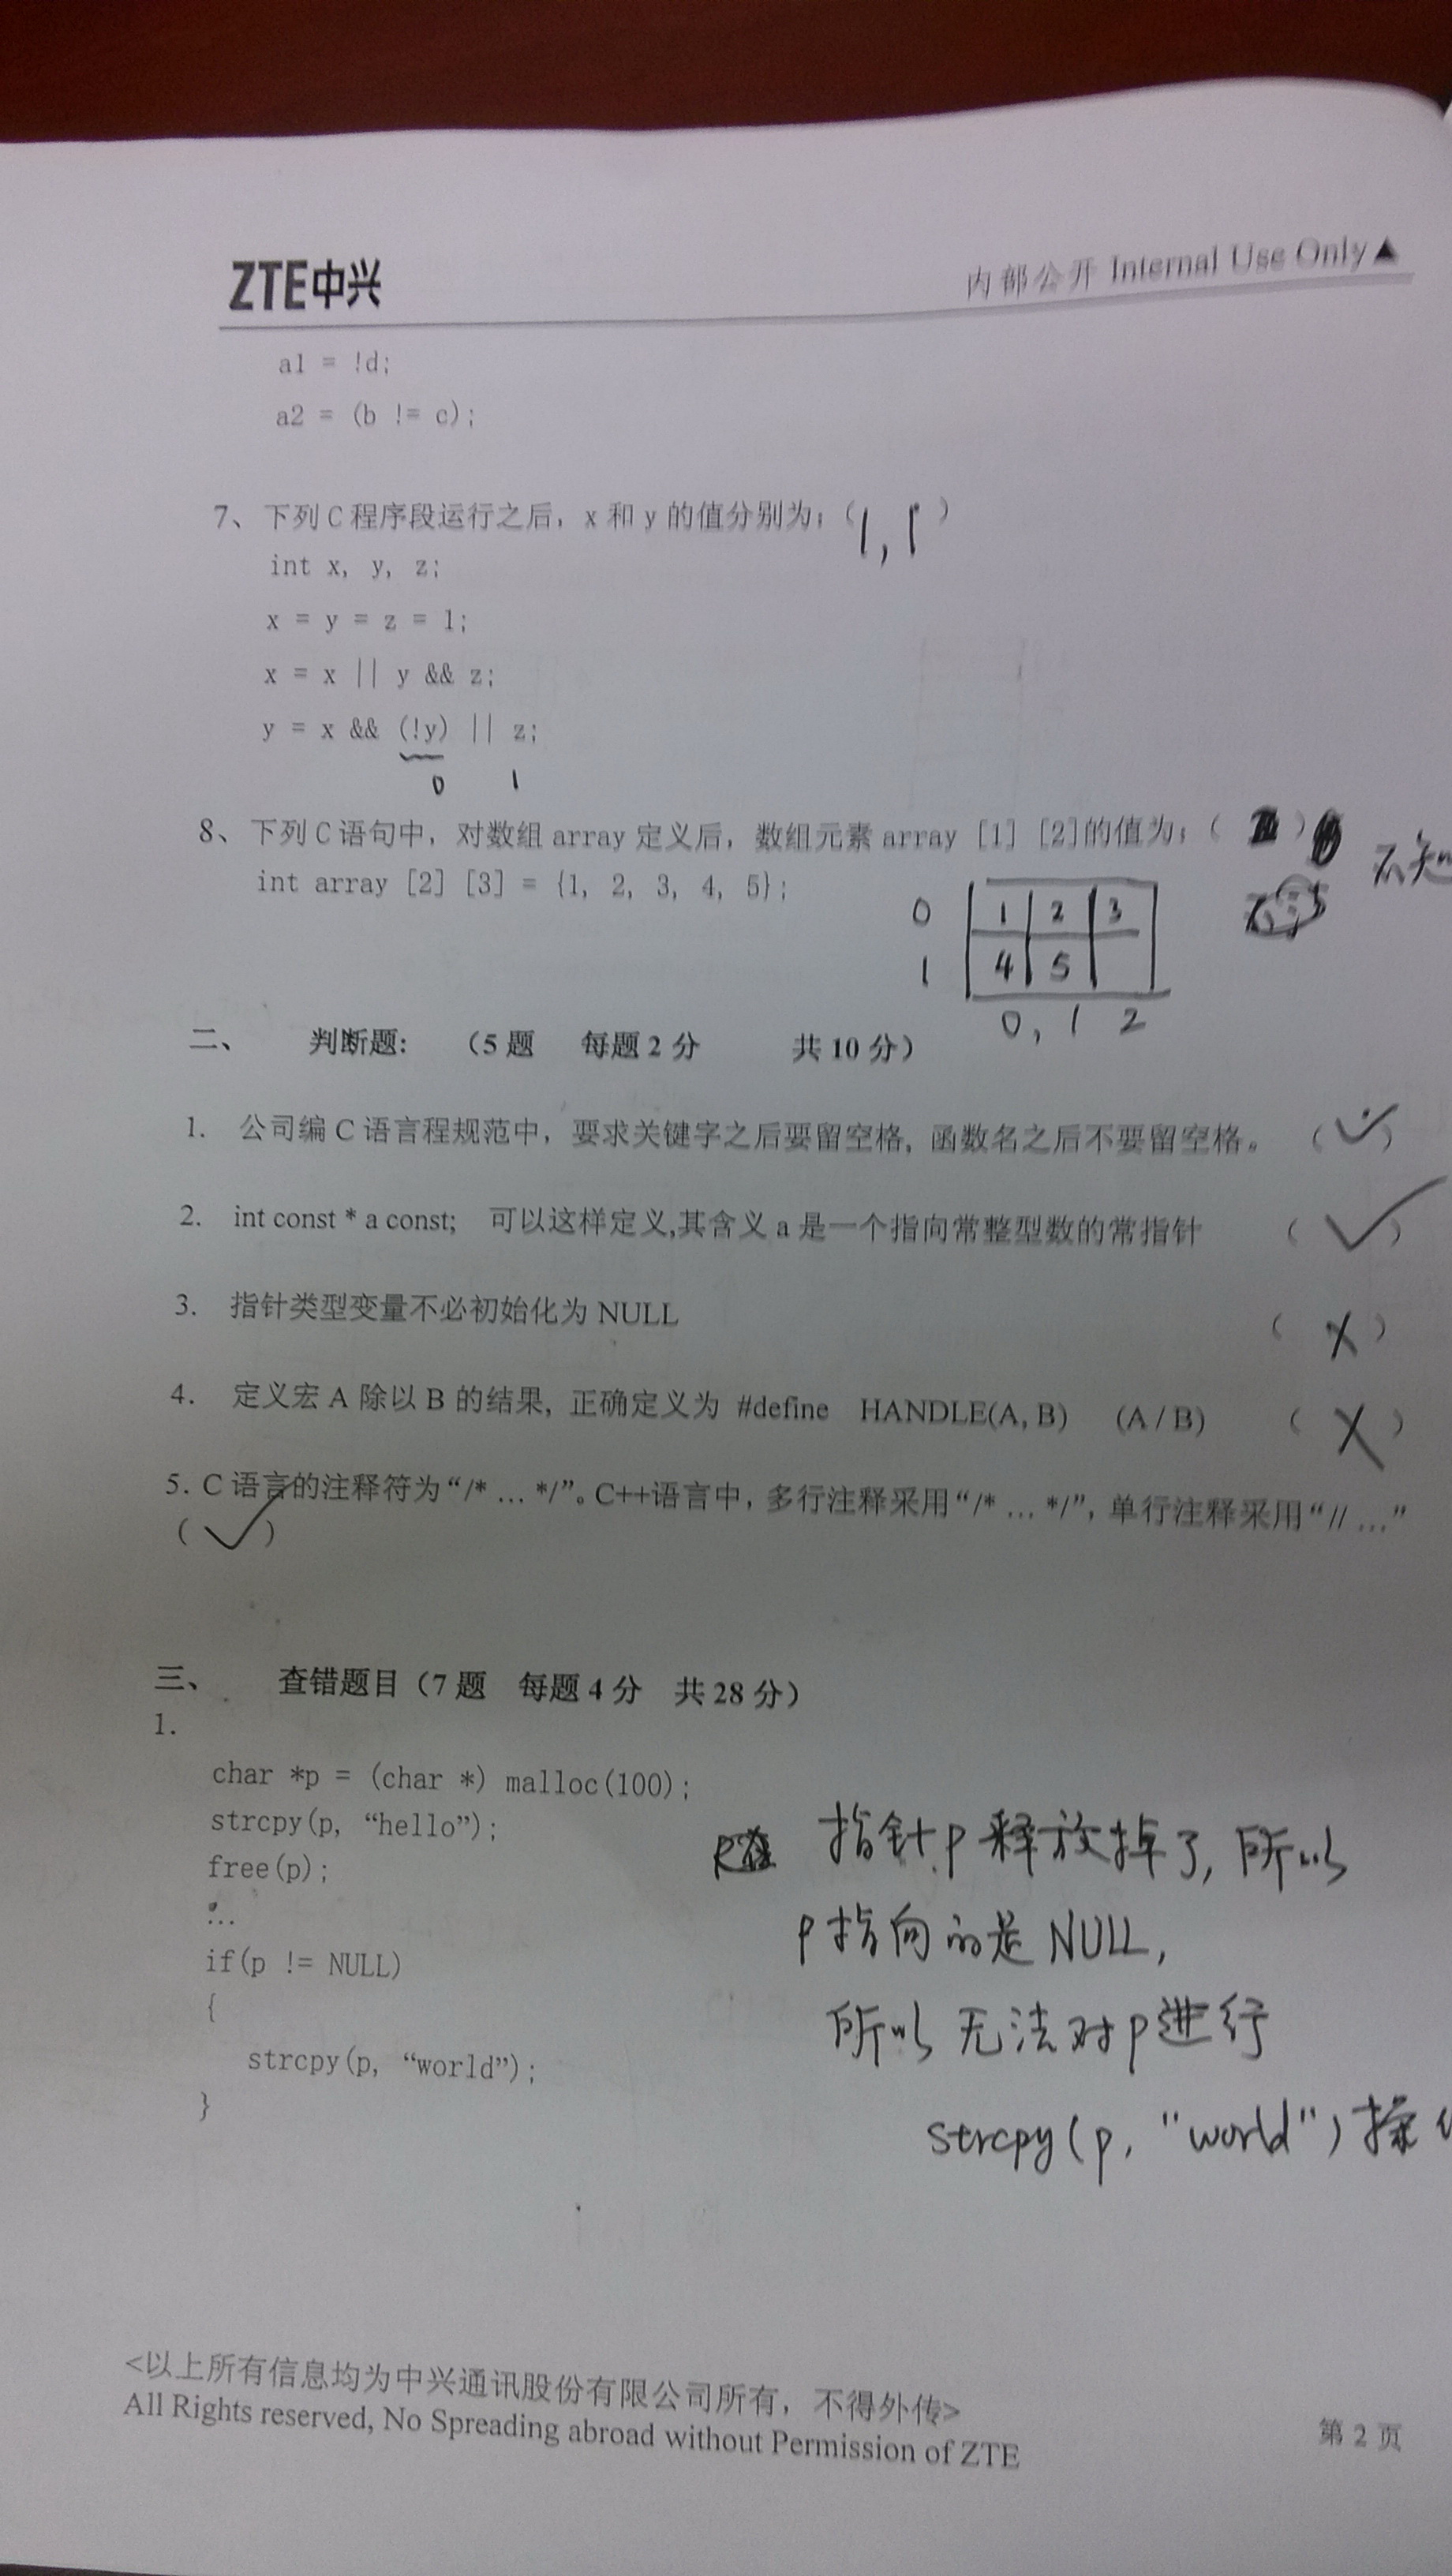 ZTE中兴
内部公开 Internal Use Only▲
a1 = !d;
a2 = (b != c);
7、下列C程序段运行之后，x和y的值分别为：(1,1)
int x, y, z;
x = y = z = 1;
x = x || y && z;
y = x && (!y) || z;
0 1
8、下列C语句中，对数组array定义后，数组元素array [1] [2]的值为：( )
不知
int array [2] [3] = {1, 2, 3, 4, 5};
0 1 2 3
1 4 5
0, 1 2
二、 判断题： （5题 每题2分 共10分）
1. 公司编C语言程规范中，要求关键字之后要留空格，函数名之后不要留空格。 (✓)
2. int const * a const; 可以这样定义,其含义a是一个指向常整型数的常指针 (✓)
3. 指针类型变量不必初始化为NULL (X)
4. 定义宏A除以B的结果，正确定义为 #define HANDLE(A, B) (A / B) (X)
5. C语言的注释符为“/* … */”。C++语言中，多行注释采用“/* … */”，单行注释采用“// …”
(✓)
三、 查错题目（7题 每题4分 共28分）
1.
char *p = (char *) malloc(100);
strcpy(p, “hello”);
free(p);
…
if(p != NULL)
{
strcpy(p, “world”);
}
指针p释放掉了,所以
p指向的是NULL,
所以无法对p进行
strcpy(p, "world")操
<以上所有信息均为中兴通讯股份有限公司所有，不得外传>
All Rights reserved, No Spreading abroad without Permission of ZTE
第2页